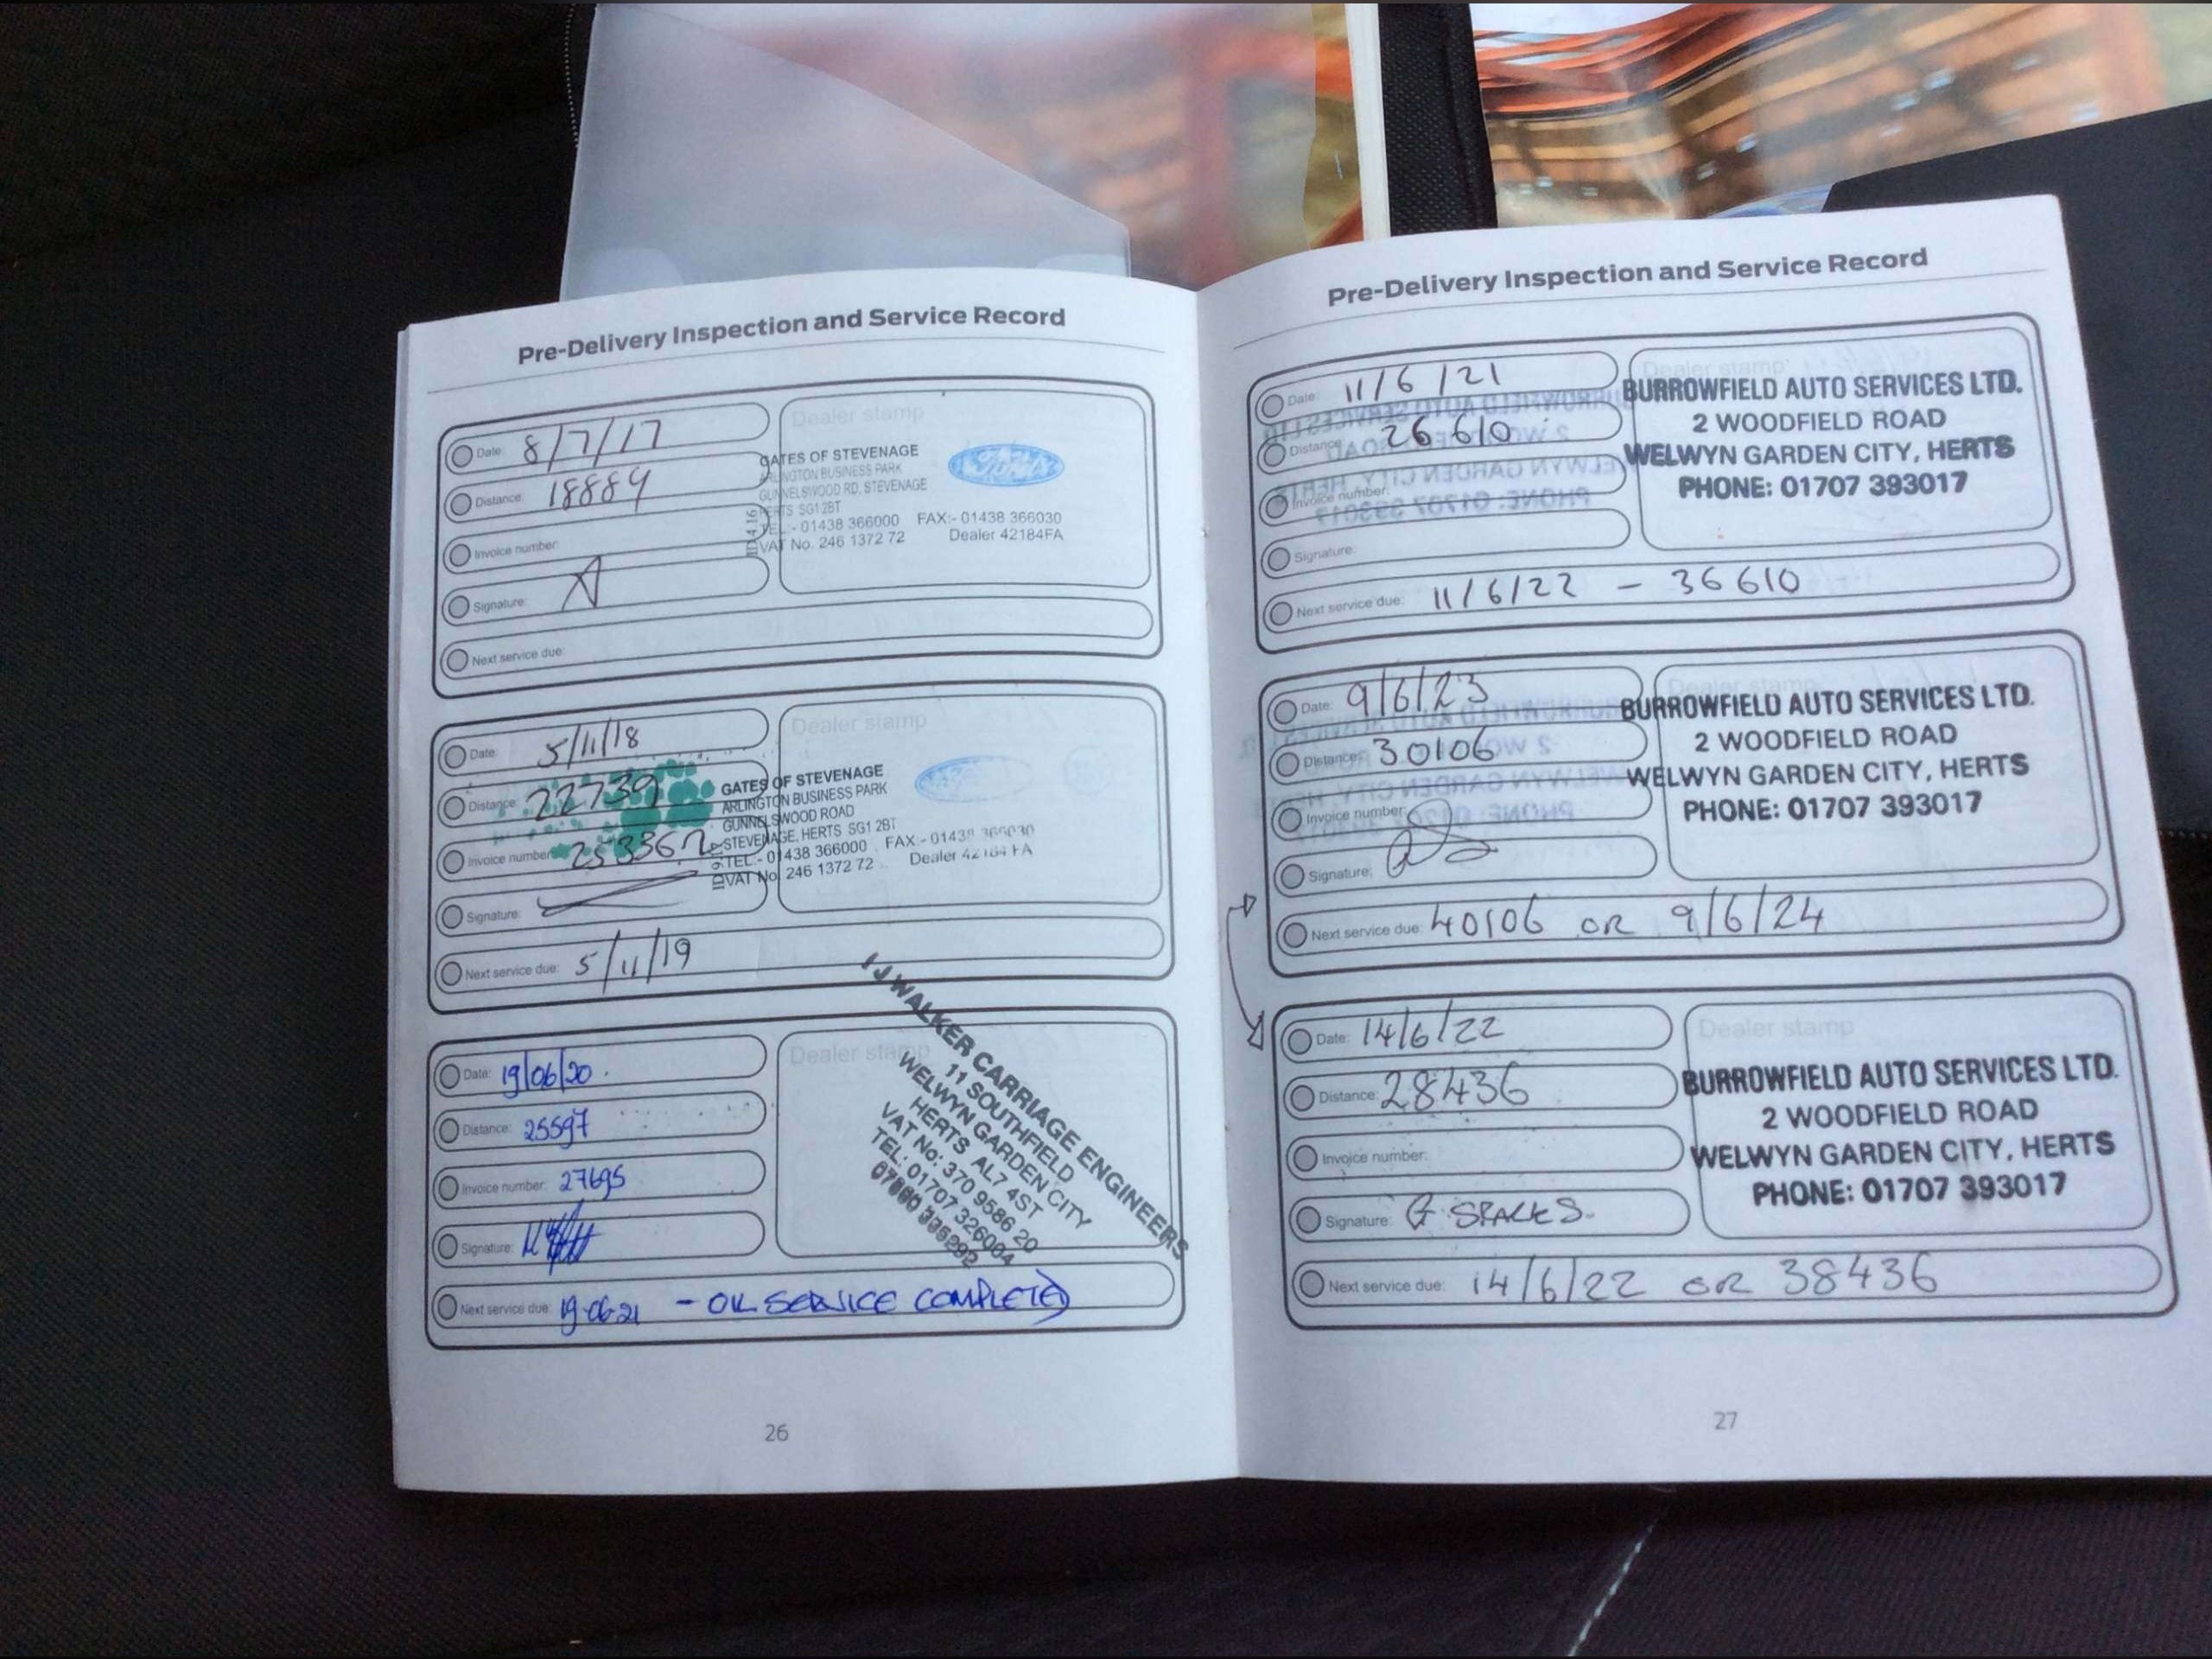 Pre-Delivery Inspection and Service Record
Date: 8/7/17
Distance: 18889
Invoice number:
Signature:
Next service due:
Dealer stamp
GATES OF STEVENAGE
ARLINGTON BUSINESS PARK
GUNNELSWOOD RD, STEVENAGE
HERTS SG1 2BT
TEL - 01438 366000 FAX:- 01438 366030
VAT No. 246 1372 72 Dealer 42184FA
Date: 5/11/18
Distance: 22739
Invoice number:
Signature:
Next service due: 5/11/19
Dealer stamp
GATES OF STEVENAGE
ARLINGTON BUSINESS PARK
GUNNELSWOOD ROAD
STEVENAGE, HERTS SG1 2BT
TEL - 01438 366000 FAX - 01438 366030
VAT No. 246 1372 72 Dealer 42184 FA
Date: 19/06/20.
Distance: 25597
Invoice number: 27695
Signature:
Next service due: 19-06-21 - OIL SERVICE COMPLETED
Dealer stamp
I J WALKER CARRIAGE ENGINEERS
11 SOUTHFIELD
WELWYN GARDEN CITY
HERTS AL7 4ST
VAT No: 370 9586 20
TEL: 01707 326004
26
Pre-Delivery Inspection and Service Record
Date: 11/6/21
Distance: 26610
Invoice number:
Signature:
Next service due: 11/6/22 - 36610
Dealer stamp
BURROWFIELD AUTO SERVICES LTD.
2 WOODFIELD ROAD
WELWYN GARDEN CITY, HERTS
PHONE: 01707 393017
Date: 9/6/23
Distance: 30106
Invoice number:
Signature:
Next service due: 40106 OR 9/6/24
Dealer stamp
BURROWFIELD AUTO SERVICES LTD.
2 WOODFIELD ROAD
WELWYN GARDEN CITY, HERTS
PHONE: 01707 393017
Date: 14/6/22
Distance: 28436
Invoice number:
Signature: G SPARKES.
Next service due: 14/6/22 OR 38436
Dealer stamp
BURROWFIELD AUTO SERVICES LTD.
2 WOODFIELD ROAD
WELWYN GARDEN CITY, HERTS
PHONE: 01707 393017
27